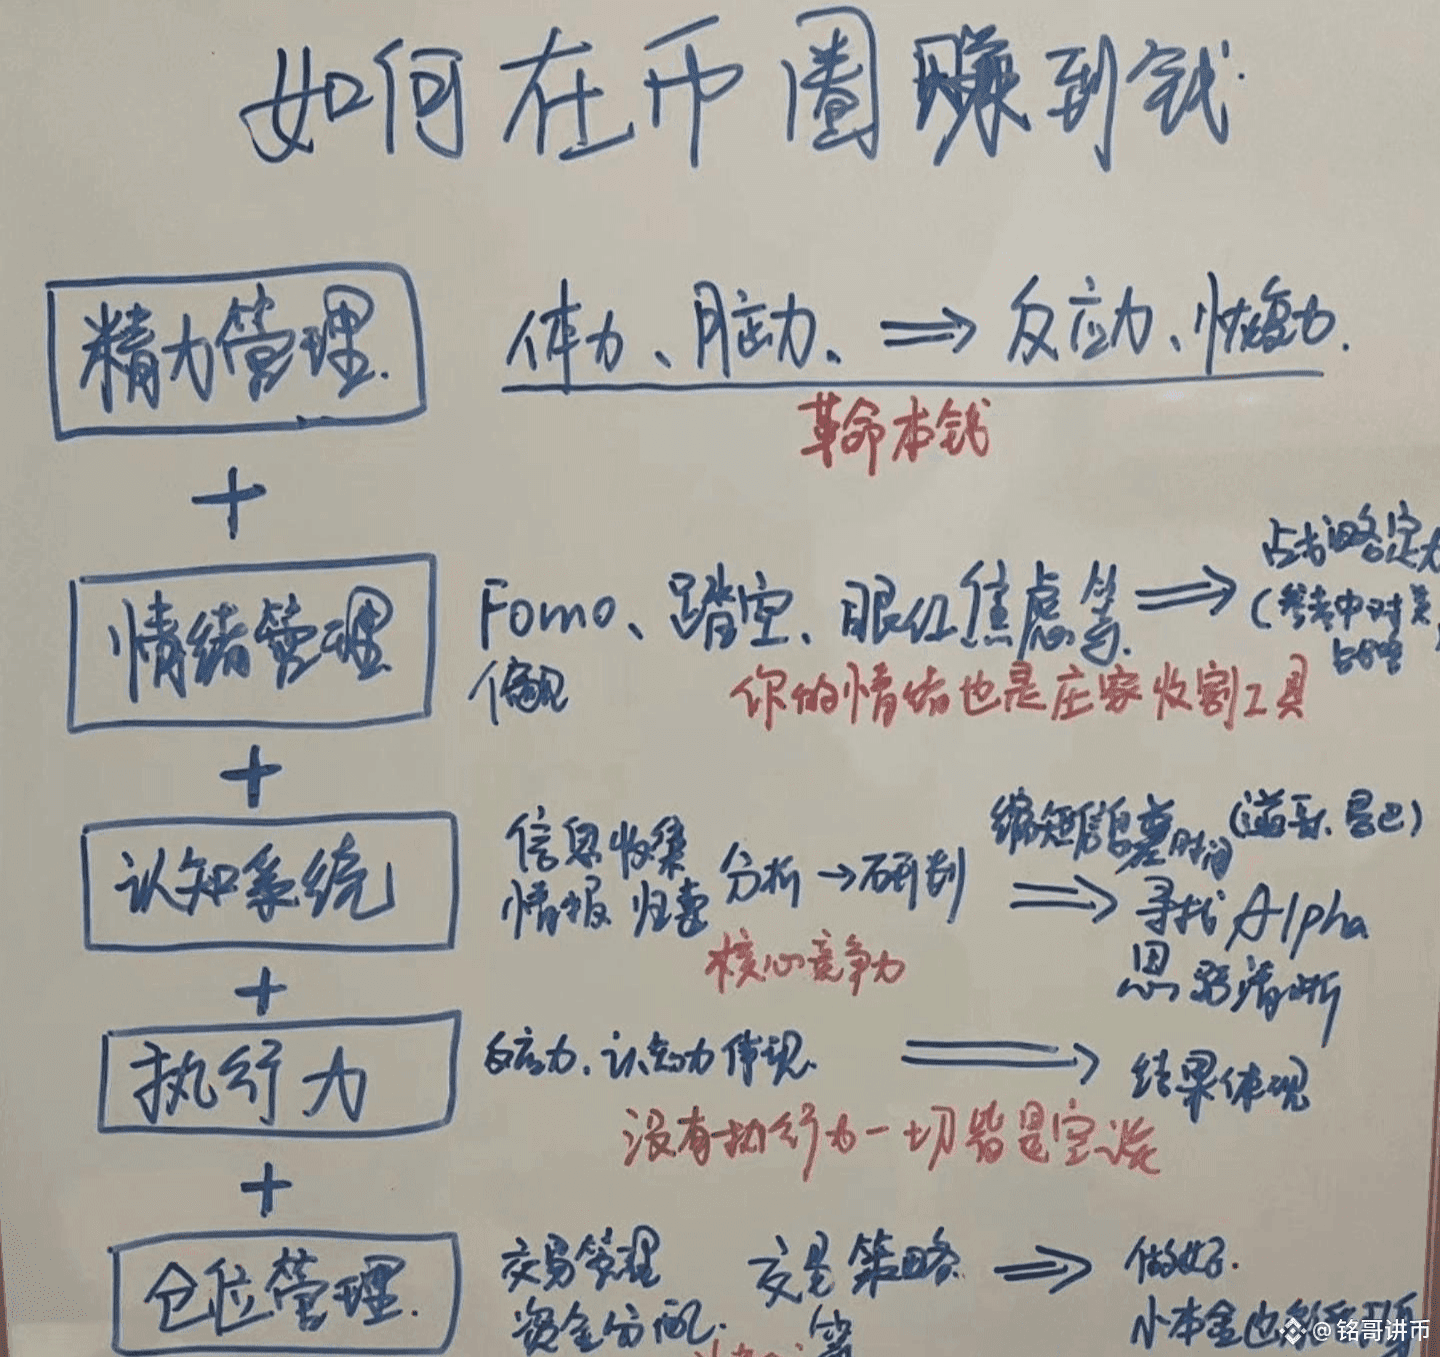 如何在币圈赚到钱.
精力管理.
体力、脑力、⟹反应力、恢复力.
革命本钱
+
情绪管理
Fomo、踏空、眼红焦虑等.⟹
偏见
战略定力
(参考中对美
战略)
你的情绪也是庄家收割工具
+
认知系统
信息收集
情报归类
分析→研判
⟹
缩短信息差时间
寻找Alpha
思路清晰
核心竞争力
+
执行力
反应力、认知力体现.⟹结果体现
没有执行力一切皆是空谈
+
仓位管理.
交易管理
资金分配.
交易策略
等
⟹
做好.
小本金也能
@铭哥讲币